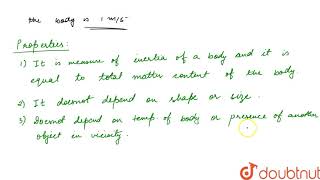 the body is 1 m/s
Properties:
1) It is measure of inertia of a body and it is
equal to total matter content of the body.
2) It doesnot depend on shape or size.
3) Doesnot depend on temp. of body or presence of another
object in vicinity.
doubtnut